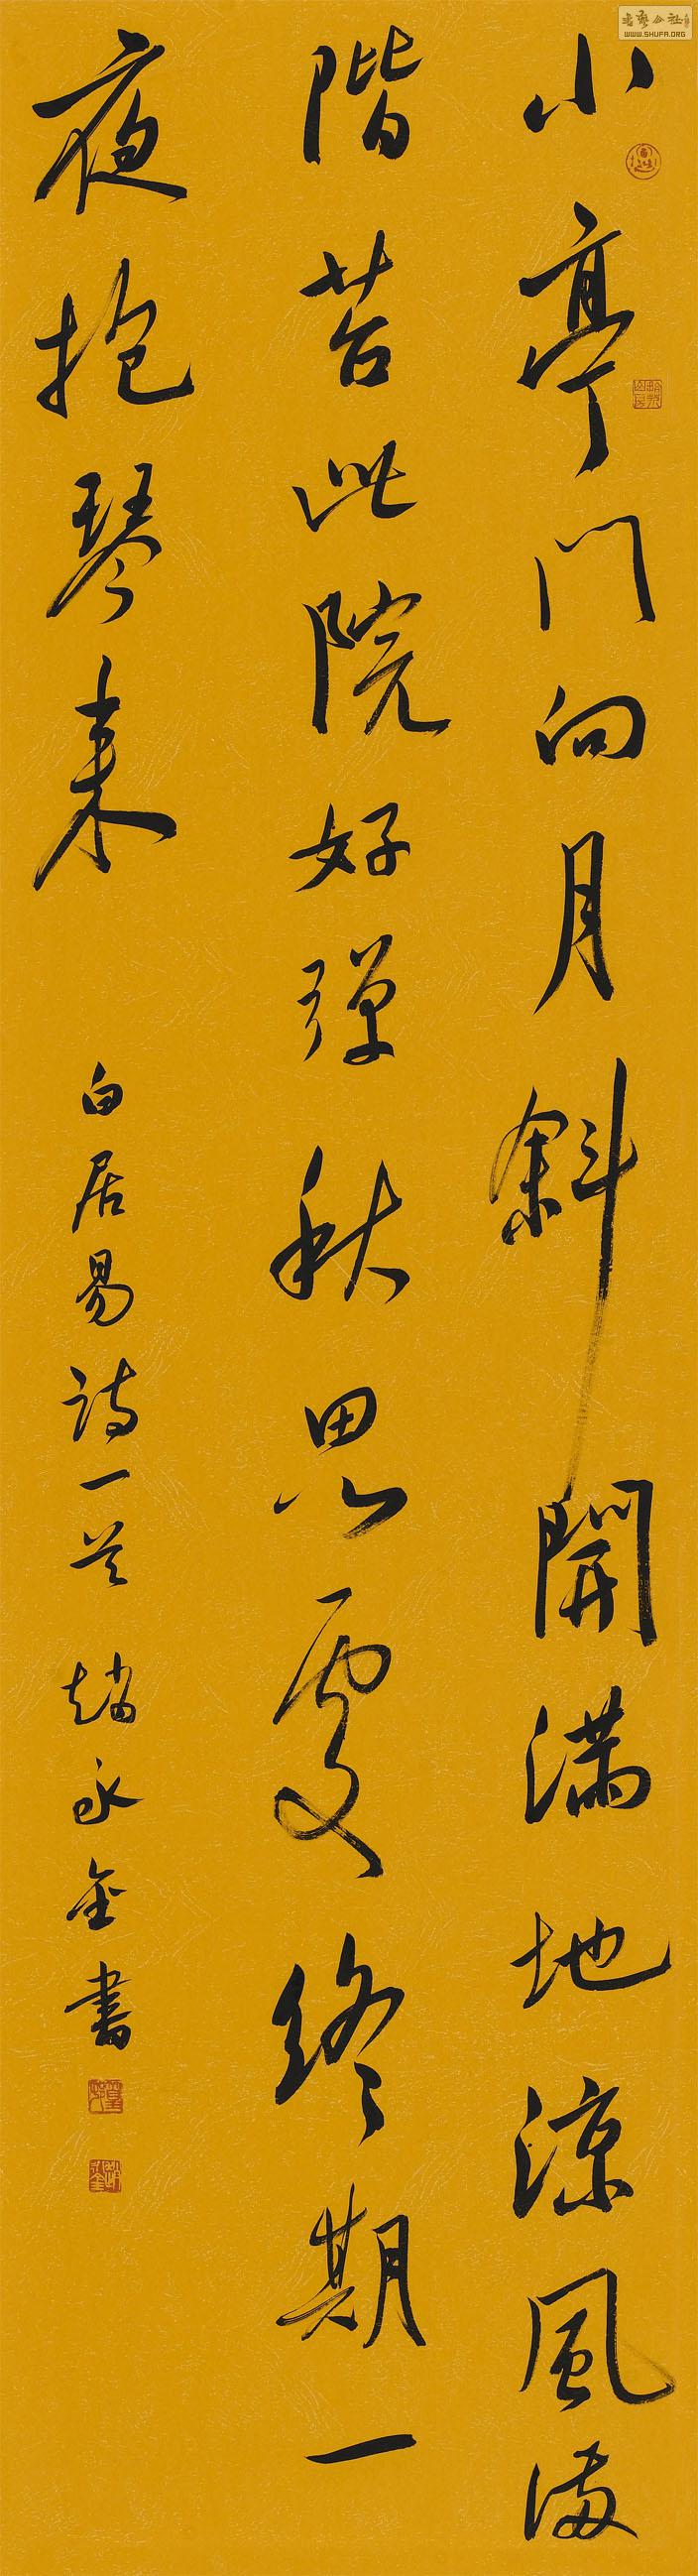 小亭門向月斜開满地涼風满
階苔此院好弹秋思處終期一
夜抱琴来
白居易詩一首 趙永金書
WWW.SHUFA.ORG